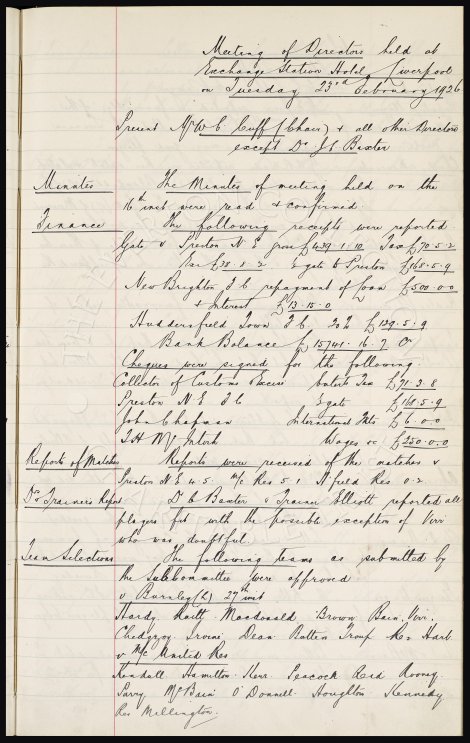 Meeting of Directors held at
Exchange Station Hotel, Liverpool
on Tuesday 23rd February 1926
Present Mr W. C. Cuff (Chair) & all other Directors
except Dr J. C. Baxter
Minutes The Minutes of meeting held on the
16th inst were read & confirmed.
Finance The following receipts were reported.
Gate v Preston N E gross £439.1.10 Tax £70.5.2
£38.1.2 % gate to Preston £168.5.9
New Brighton F C repayment of loan £500.0.0
& Interest £13.15.0
Huddersfield Town F C £129.5.9
Bank Balance £15741.16.7 Cr
Cheques were signed for the following.
Collector of Customs & Excise Entert Tax £71.3.8
Preston N. E. F C % gate £168.5.9
John Chapman International Tkts £6.0.0
T. H. McIntosh Wages &c £250.0.0
Reports of Matches Reports were received of the matches v
Preston N E 4.5 M/c Res 5.1 N'field Res 0.2
Drs & Trainers Report Dr C Baxter & Trainer Elliott reported all
players fit with the possible exception of Virr
who was doubtful
Team Selections The following teams as submitted by
the Subcommittee were approved
v Burnley (h) 27th inst
Hardy Raitt Macdonald Brown Bain, Virr,
Chedgzoy Irvine Dean Batten Troup Res Hart
v M/c United Res
Kendall Hamilton Kerr Peacock Reid Rooney
Parry McBain O'Donnell Houghton Kennedy
Res Millington.